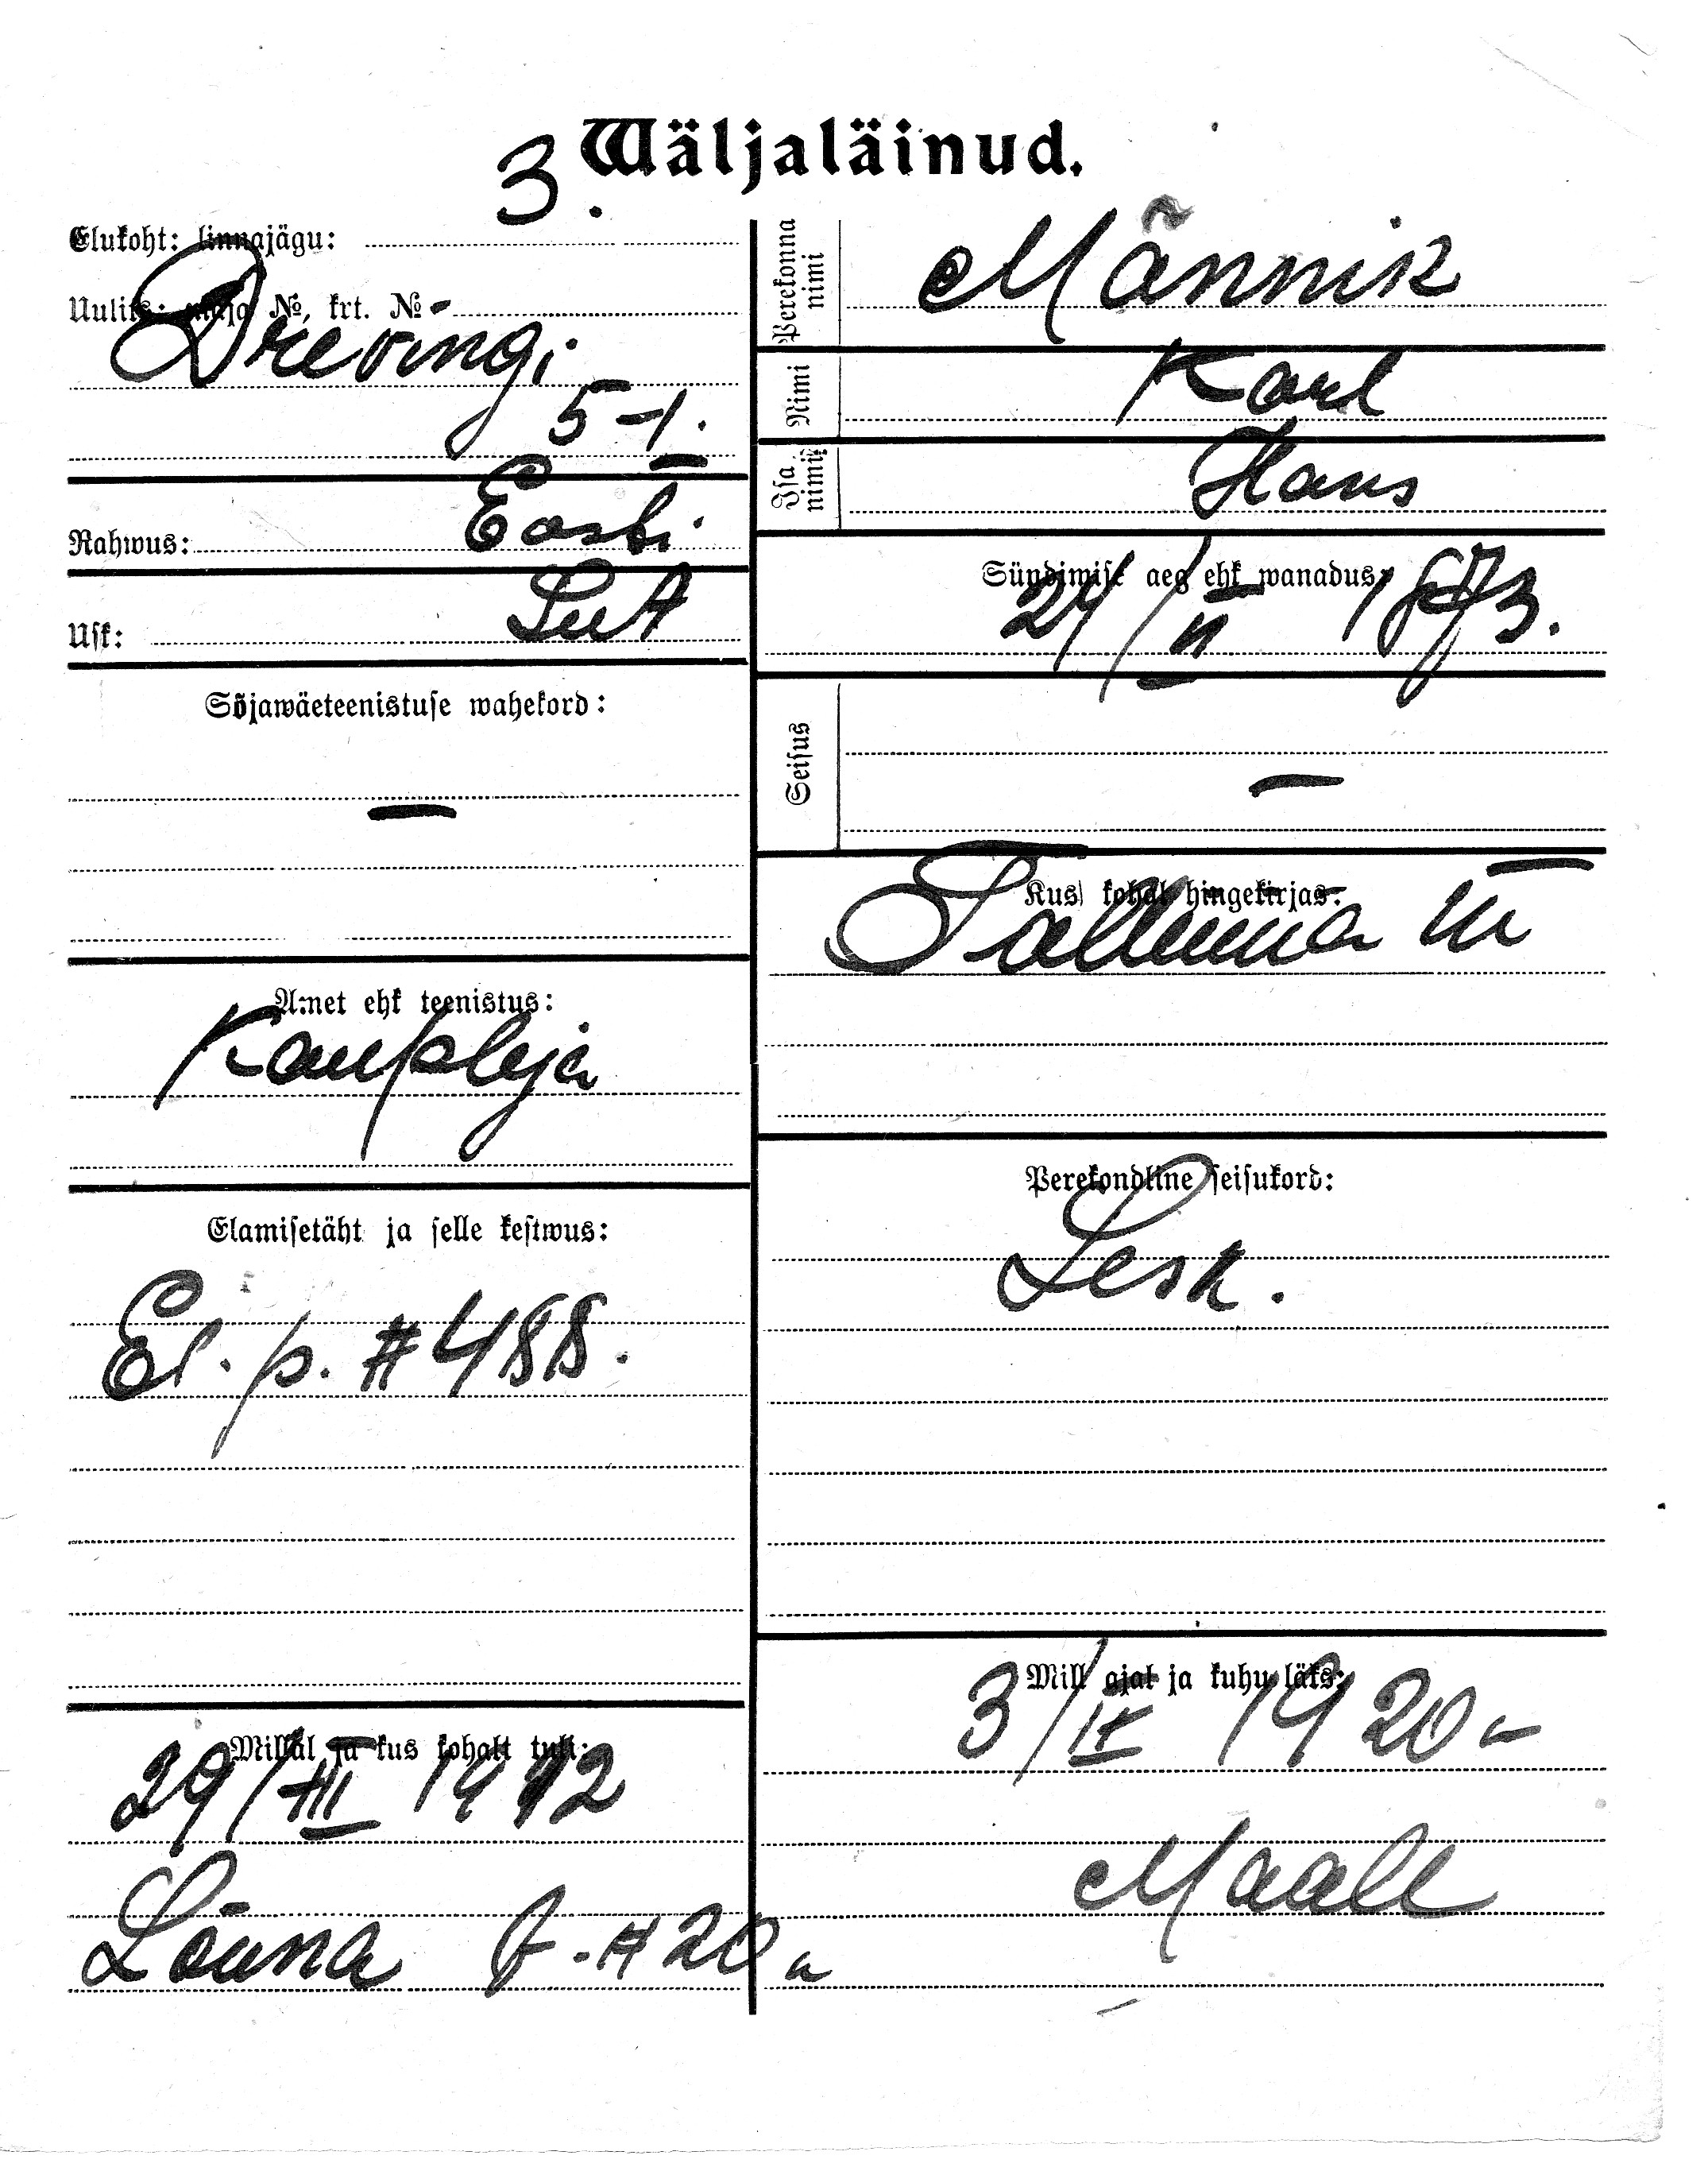 3. Wäljaläinud.
Elukoht: linnajägu:
Uulits: maja №, krt. №
Drevingi
5-1.
Rahwus: Eesti
Usk: Lut
Sõjawäeteenistuse wahekord:
—
Amet ehk teenistus:
Kaupleja
Elamisetäht ja selle kestwus:
El. p. # 488.
Millal ja kus kohalt tuli:
29/XII 1912
Lõuna t. # 20 a
Perekonna nimi
Männik
Nimi
Karl
Isa nimi
Hans
Sündimise aeg ehk wanadus:
24/II 1873.
Seisus
—
Kus kohal hingekirjas:
Tallinna
Perekondline seisukord:
Lesk.
Mill ajal ja kuhu läks:
3/IX 1920 -
Maale